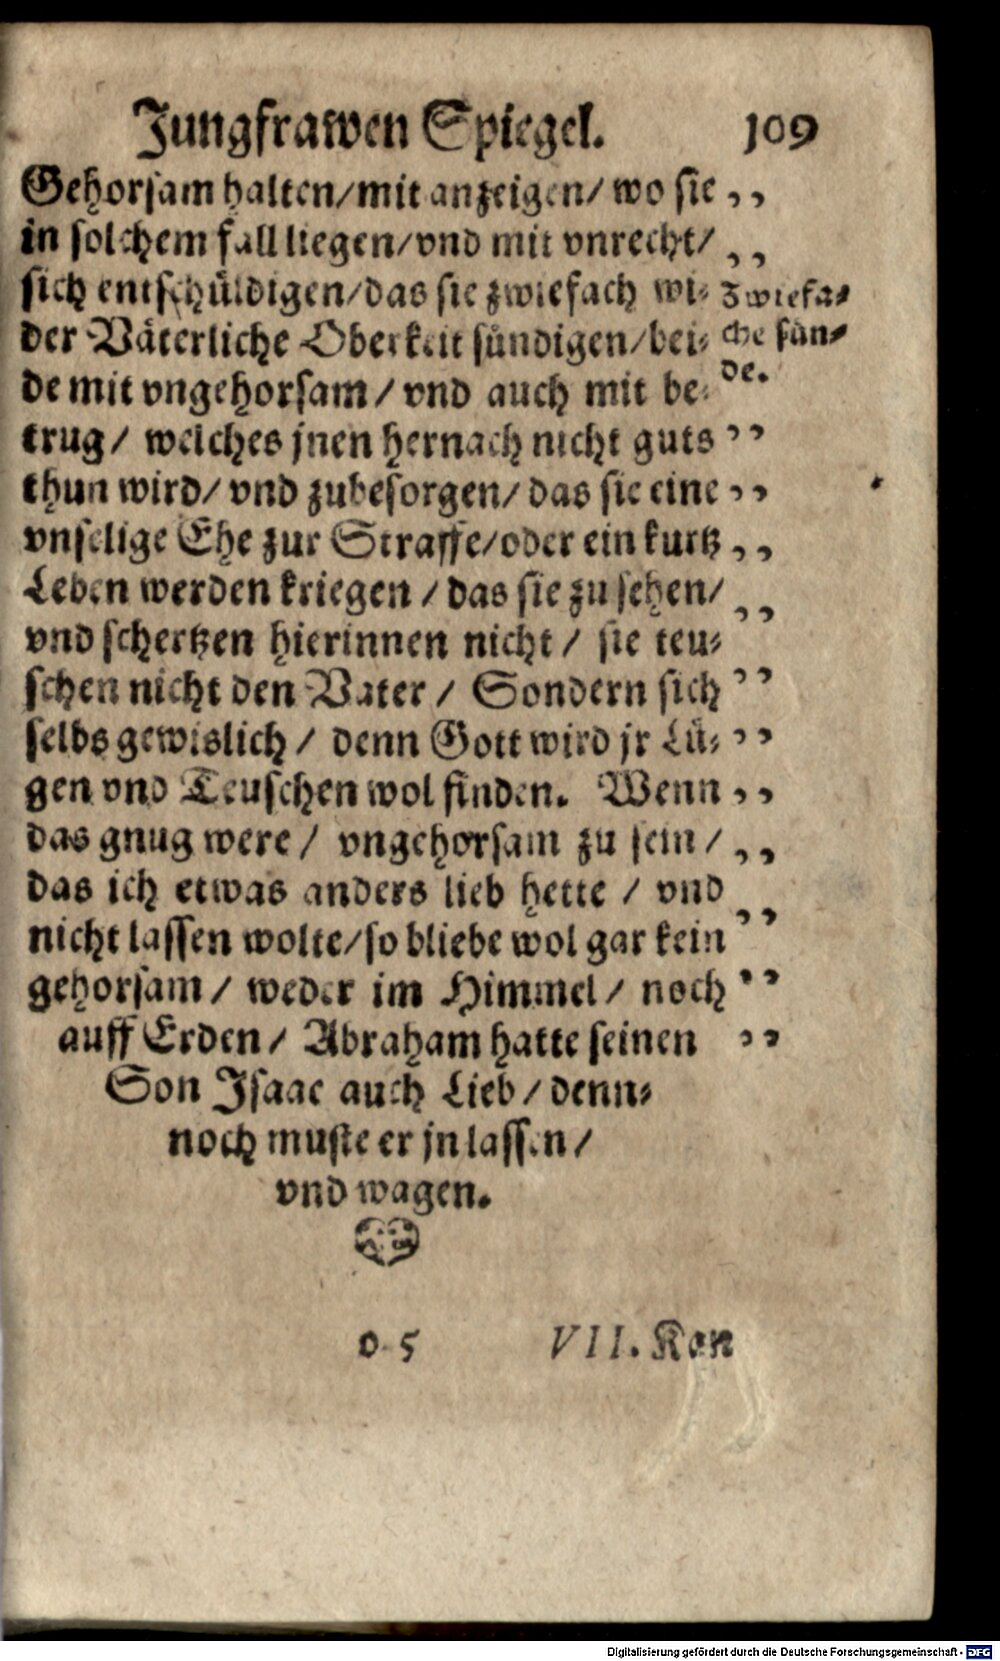 Jungfrawen Spiegel. 109
Gehorsam halten/mit anzeigen/ wo sie ,,
in solchem fall liegen/vnd mit vnrecht/ ,,
sich entschüldigen/das sie zwiefach wi-
der Väterliche Oberkeit sündigen/bei-
de mit vngehorsam/ vnd auch mit be-
Zwiefa-
che sün-
de.
trug/ welches jnen hernach nicht guts ,,
thun wird/ vnd zubesorgen/ das sie eine ,,
vnselige Ehe zur Straffe/oder ein kurtz ,,
Leben werden kriegen / das sie zu sehen/ ,,
vnd schertzen hierinnen nicht / sie teu-
schen nicht den Vater / Sondern sich ,,
selbs gewislich / denn Gott wird jr Lü- ,,
gen vnd Teuschen wol finden. Wenn ,,
das gnug were / vngehorsam zu sein / ,,
das ich etwas anders lieb hette / vnd ,,
nicht lassen wolte/so bliebe wol gar kein
gehorsam / weder im Himmel / noch ,,
auff Erden / Abraham hatte seinen ,,
Son Jsaac auch Lieb / denn-
noch muste er jn lassen /
vnd wagen.
O 5 VII. Kon
Digitalisierung gefördert durch die Deutsche Forschungsgemeinschaft - DFG